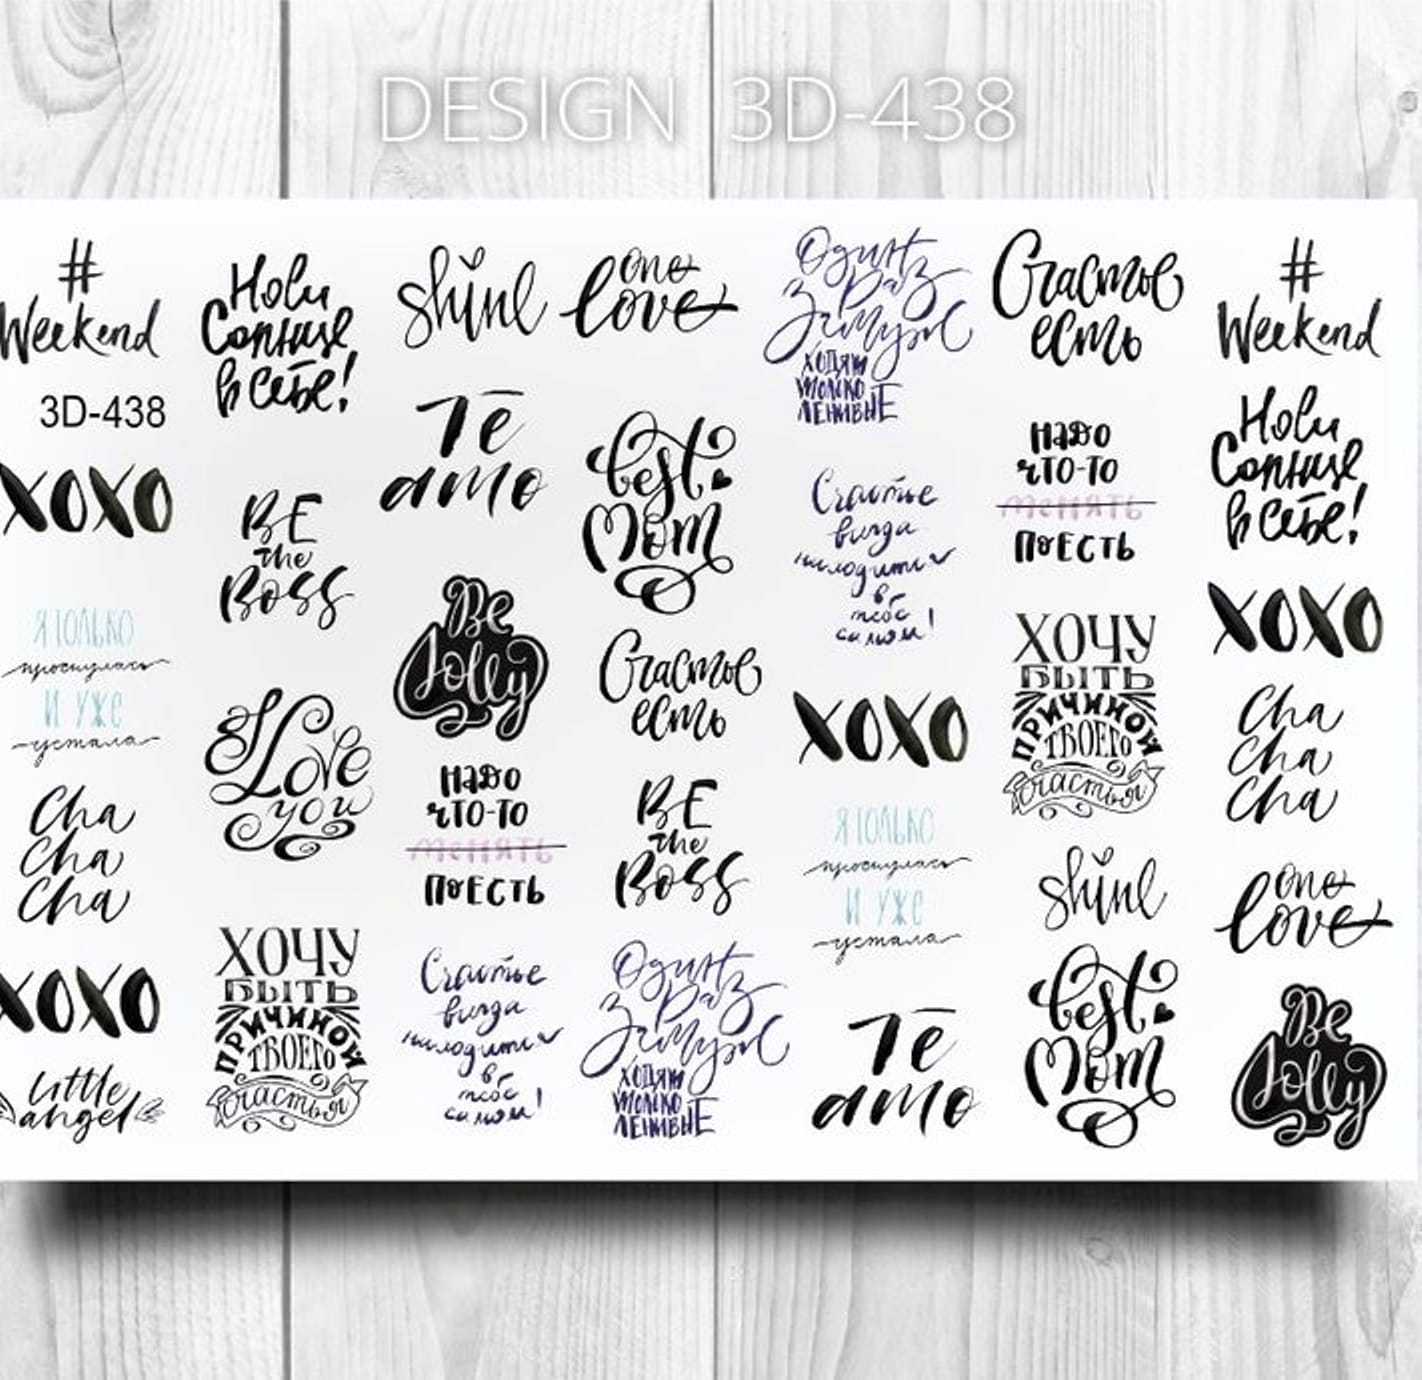 DESIGN 3D-438
#
Weekend
3D-438
XOXO
Я ТОЛЬКО
проснулась
И УЖЕ
устала
Cha
Cha
Cha
XOXO
little
angel
Ноги
Солнце
в себе!
BE
the
Boss
I Love
you
ХОЧУ
БЫТЬ
ПРИЧИНОЙ
ТВОЕГО
счастья
shine
Te
amo
Be
Jolly
НАДО
ЧТО-ТО
МЕНЯТЬ
ПОЕСТЬ
Счастье
всегда
находится
в
тебе
самом!
one
love
Best
Mom
Счастье
есть
BE
the
Boss
Один
раз
замуж
ХОДЯТ
ТОЛЬКО
ЛЕНИВЫЕ
Один
раз
замуж
ХОДЯТ
ТОЛЬКО
ЛЕНИВЫЕ
Счастье
всегда
находится
в
тебе
самом!
XOXO
Я ТОЛЬКО
проснулась
И УЖЕ
устала
Te
amo
Счастье
есть
НАДО
ЧТО-ТО
МЕНЯТЬ
ПОЕСТЬ
ХОЧУ
БЫТЬ
ПРИЧИНОЙ
ТВОЕГО
счастья
shine
Best
Mom
#
Weekend
Солнце
в себе!
XOXO
Cha
Cha
Cha
one
love
Be
Jolly